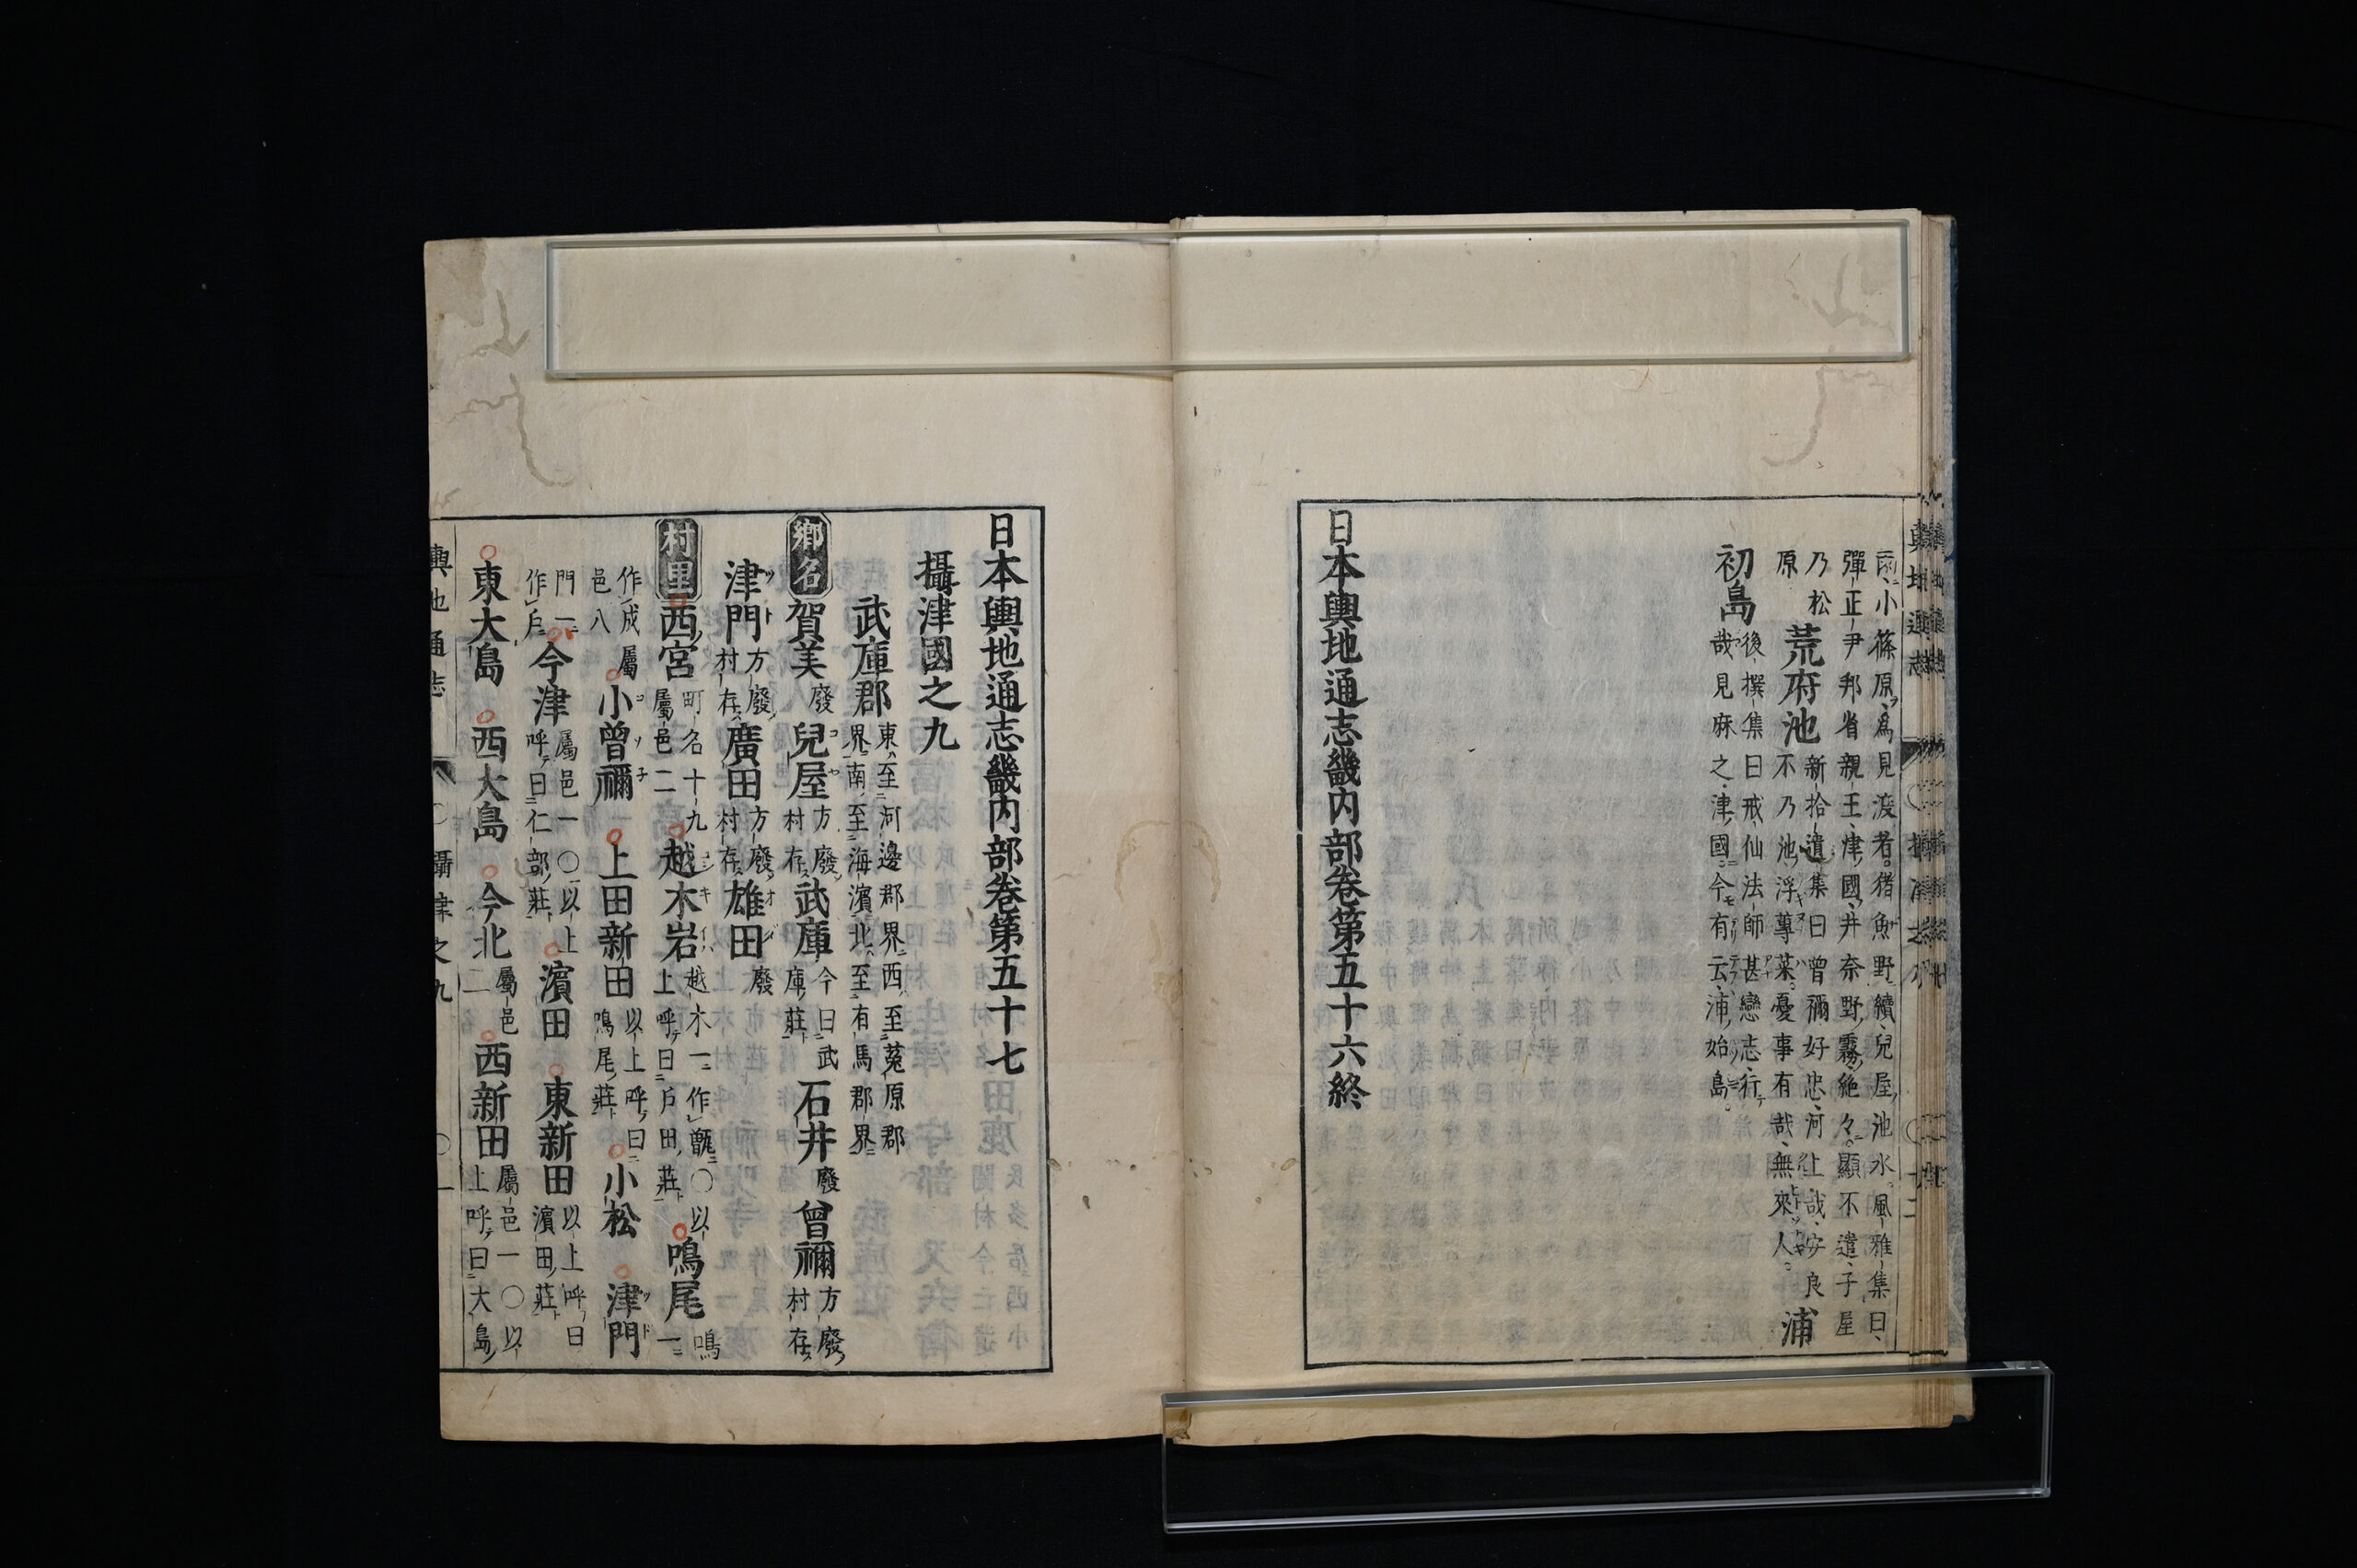 雨小篠原爲見渡者猪魚野續兒屋池水風雅集曰
彈正尹邦省親王津國井奈野霧絶々顯不遣子屋
乃松
原
荒府池
新拾遺集曰曾禰好忠河上哉安良
不乃池浮蓴菜憂事有哉無來人
浦
初島
後撰集曰戒仙法師甚戀志行
哉見麻之津國今有云浦始島
日本輿地通志畿内部卷第五十六終
日本輿地通志畿内部卷第五十七
攝津國之九
武庫郡
東至河邊郡界西至菟原郡
界南至海濱北至有馬郡界
鄉名
賀美
廢
兒屋
方廢
村存
武庫
今曰武
庫莊
石井
廢
曾禰
方廢
村存
津門
方廢
村存
廣田
方廢
村存
雄田
廢
村里
西宮
町名十九
屬邑二
越木岩
越木一作甑〇以
上呼曰戶田莊
鳴尾
鳴
一
作成屬
邑八
小曾禰
上田新田
以上呼曰
鳴尾莊
小松
津門
門一
作戶
今津
屬邑一〇以上
呼曰仁部莊
濱田
東新田
以上呼曰
濱田莊
東大島
西大島
今北
屬邑
二
西新田
屬邑一〇以
上呼曰大島
輿地通志
攝津之九
〇一